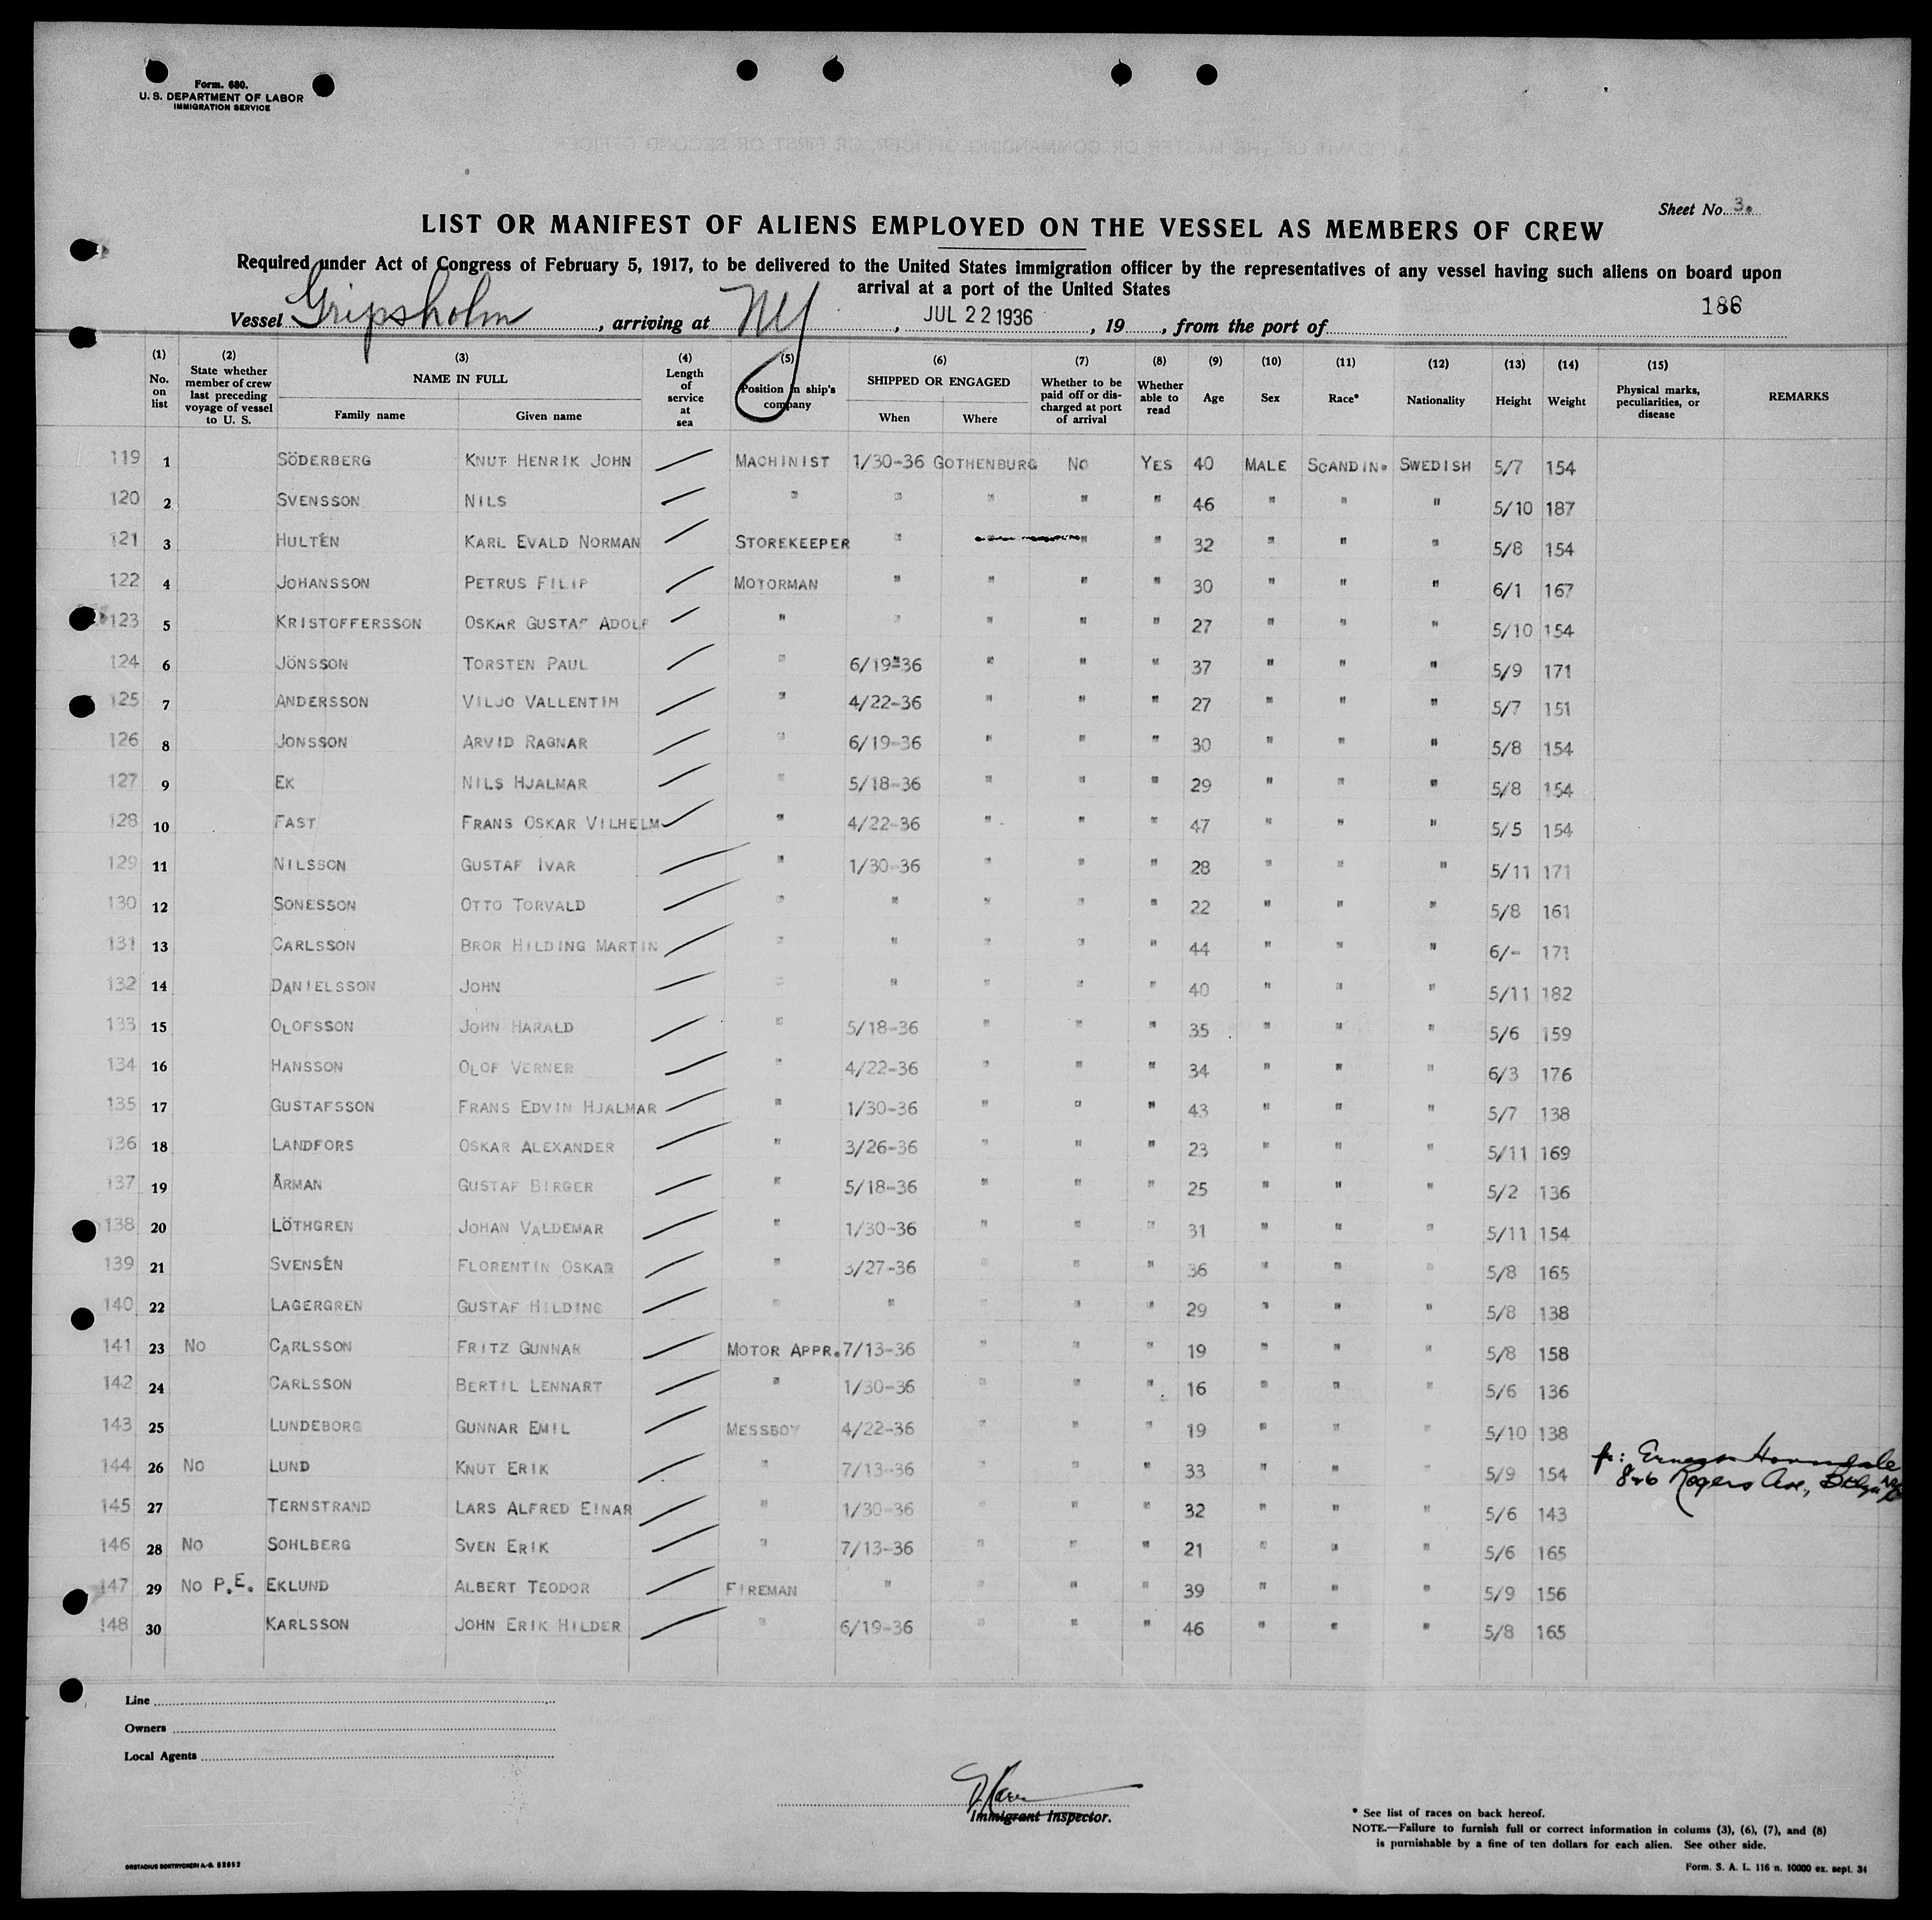 Form. 680.
U. S. DEPARTMENT OF LABOR
IMMIGRATION SERVICE
Sheet No. 3.
LIST OR MANIFEST OF ALIENS EMPLOYED ON THE VESSEL AS MEMBERS OF CREW
Required under Act of Congress of February 5, 1917, to be delivered to the United States immigration officer by the representatives of any vessel having such aliens on board upon
arrival at a port of the United States
186
Vessel Gripsholm, arriving at NY, JUL 22 1936, 19, from the port of
(1) No. on list (2) State whether member of crew last preceding voyage of vessel to U. S. (3) NAME IN FULL Family name Given name (4) Length of service at sea (5) Position in ship's company (6) SHIPPED OR ENGAGED When Where (7) Whether to be paid off or discharged at port of arrival (8) Whether able to read (9) Age (10) Sex (11) Race* (12) Nationality (13) Height (14) Weight (15) Physical marks, peculiarities, or disease REMARKS
119 1 SÖDERBERG KNUT HENRIK JOHN MACHINIST 1/30-36 GOTHENBURG NO YES 40 MALE SCANDIN. SWEDISH 5/7 154
120 2 SVENSSON NILS " " " " " 46 " " " 5/10 187
121 3 HULTÉN KARL EVALD NORMAN STOREKEEPER " " " 32 " " " 5/8 154
122 4 JOHANSSON PETRUS FILIP MOTORMAN " " " " 30 " " " 6/1 167
123 5 KRISTOFFERSSON OSKAR GUSTAF ADOLF " " " " " 27 " " " 5/10 154
124 6 JÖNSSON TORSTEN PAUL " 6/19-36 " " " 37 " " " 5/9 171
125 7 ANDERSSON VILJO VALLENTIN " 4/22-36 " " " 27 " " " 5/7 151
126 8 JONSSON ARVID RAGNAR " 6/19-36 " " " 30 " " " 5/8 154
127 9 EK NILS HJALMAR " 5/18-36 " " " 29 " " " 5/8 154
128 10 FAST FRANS OSKAR VILHELM " 4/22-36 " " " 47 " " " 5/5 154
129 11 NILSSON GUSTAF IVAR " 1/30-36 " " " 28 " " " 5/11 171
130 12 SONESSON OTTO TORVALD " " " " " 22 " " " 5/8 161
131 13 CARLSSON BROR HILDING MARTIN " " " " " 44 " " " 6/- 171
132 14 DANIELSSON JOHN " " " " " 40 " " " 5/11 182
133 15 OLOFSSON JOHN HARALD " 5/18-36 " " " 35 " " " 5/6 159
134 16 HANSSON OLOF VERNER " 4/22-36 " " " 34 " " " 6/3 176
135 17 GUSTAFSSON FRANS EDVIN HJALMAR " 1/30-36 " " " 43 " " " 5/7 138
136 18 LANDFORS OSKAR ALEXANDER " 3/26-36 " " " 23 " " " 5/11 169
137 19 ÅRMAN GUSTAF BIRGER " 5/18-36 " " " 25 " " " 5/2 136
138 20 LÖTHGREN JOHAN VALDEMAR " 1/30-36 " " " 31 " " " 5/11 154
139 21 SVENSÉN FLORENTIN OSKAR " 3/27-36 " " " 36 " " " 5/8 165
140 22 LAGERGREN GUSTAF HILDING " " " " " 29 " " " 5/8 138
141 23 NO CARLSSON FRITZ GUNNAR MOTOR APPR. 7/13-36 " " " 19 " " " 5/8 158
142 24 CARLSSON BERTIL LENNART " 1/30-36 " " " 16 " " " 5/6 136
143 25 LUNDEBORG GUNNAR EMIL MESSBOY 4/22-36 " " " 19 " " " 5/10 138
144 26 NO LUND KNUT ERIK " 7/13-36 " " " 33 " " " 5/9 154 fr:
826 Rogers Ave., Bklyn
145 27 TERNSTRAND LARS ALFRED EINAR " 1/30-36 " " " 32 " " " 5/6 143
146 28 NO SOHLBERG SVEN ERIK " 7/13-36 " " " 21 " " " 5/6 165
147 29 NO P.E. EKLUND ALBERT TEODOR FIREMAN " " " " 39 " " " 5/9 156
148 30 KARLSSON JOHN ERIK HILDER " 6/19-36 " " " 46 " " " 5/8 165
Line
Owners
Local Agents
Immigrant Inspector.
* See list of races on back hereof.
NOTE.—Failure to furnish full or correct information in colums (3), (6), (7), and (8)
is purnishable by a fine of ten dollars for each alien. See other side.
Form. S. A. L. 116 n. 10000 ex. sept. 34